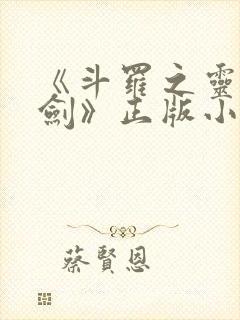 《斗羅之靈
劍》正版小
蔡賢恩